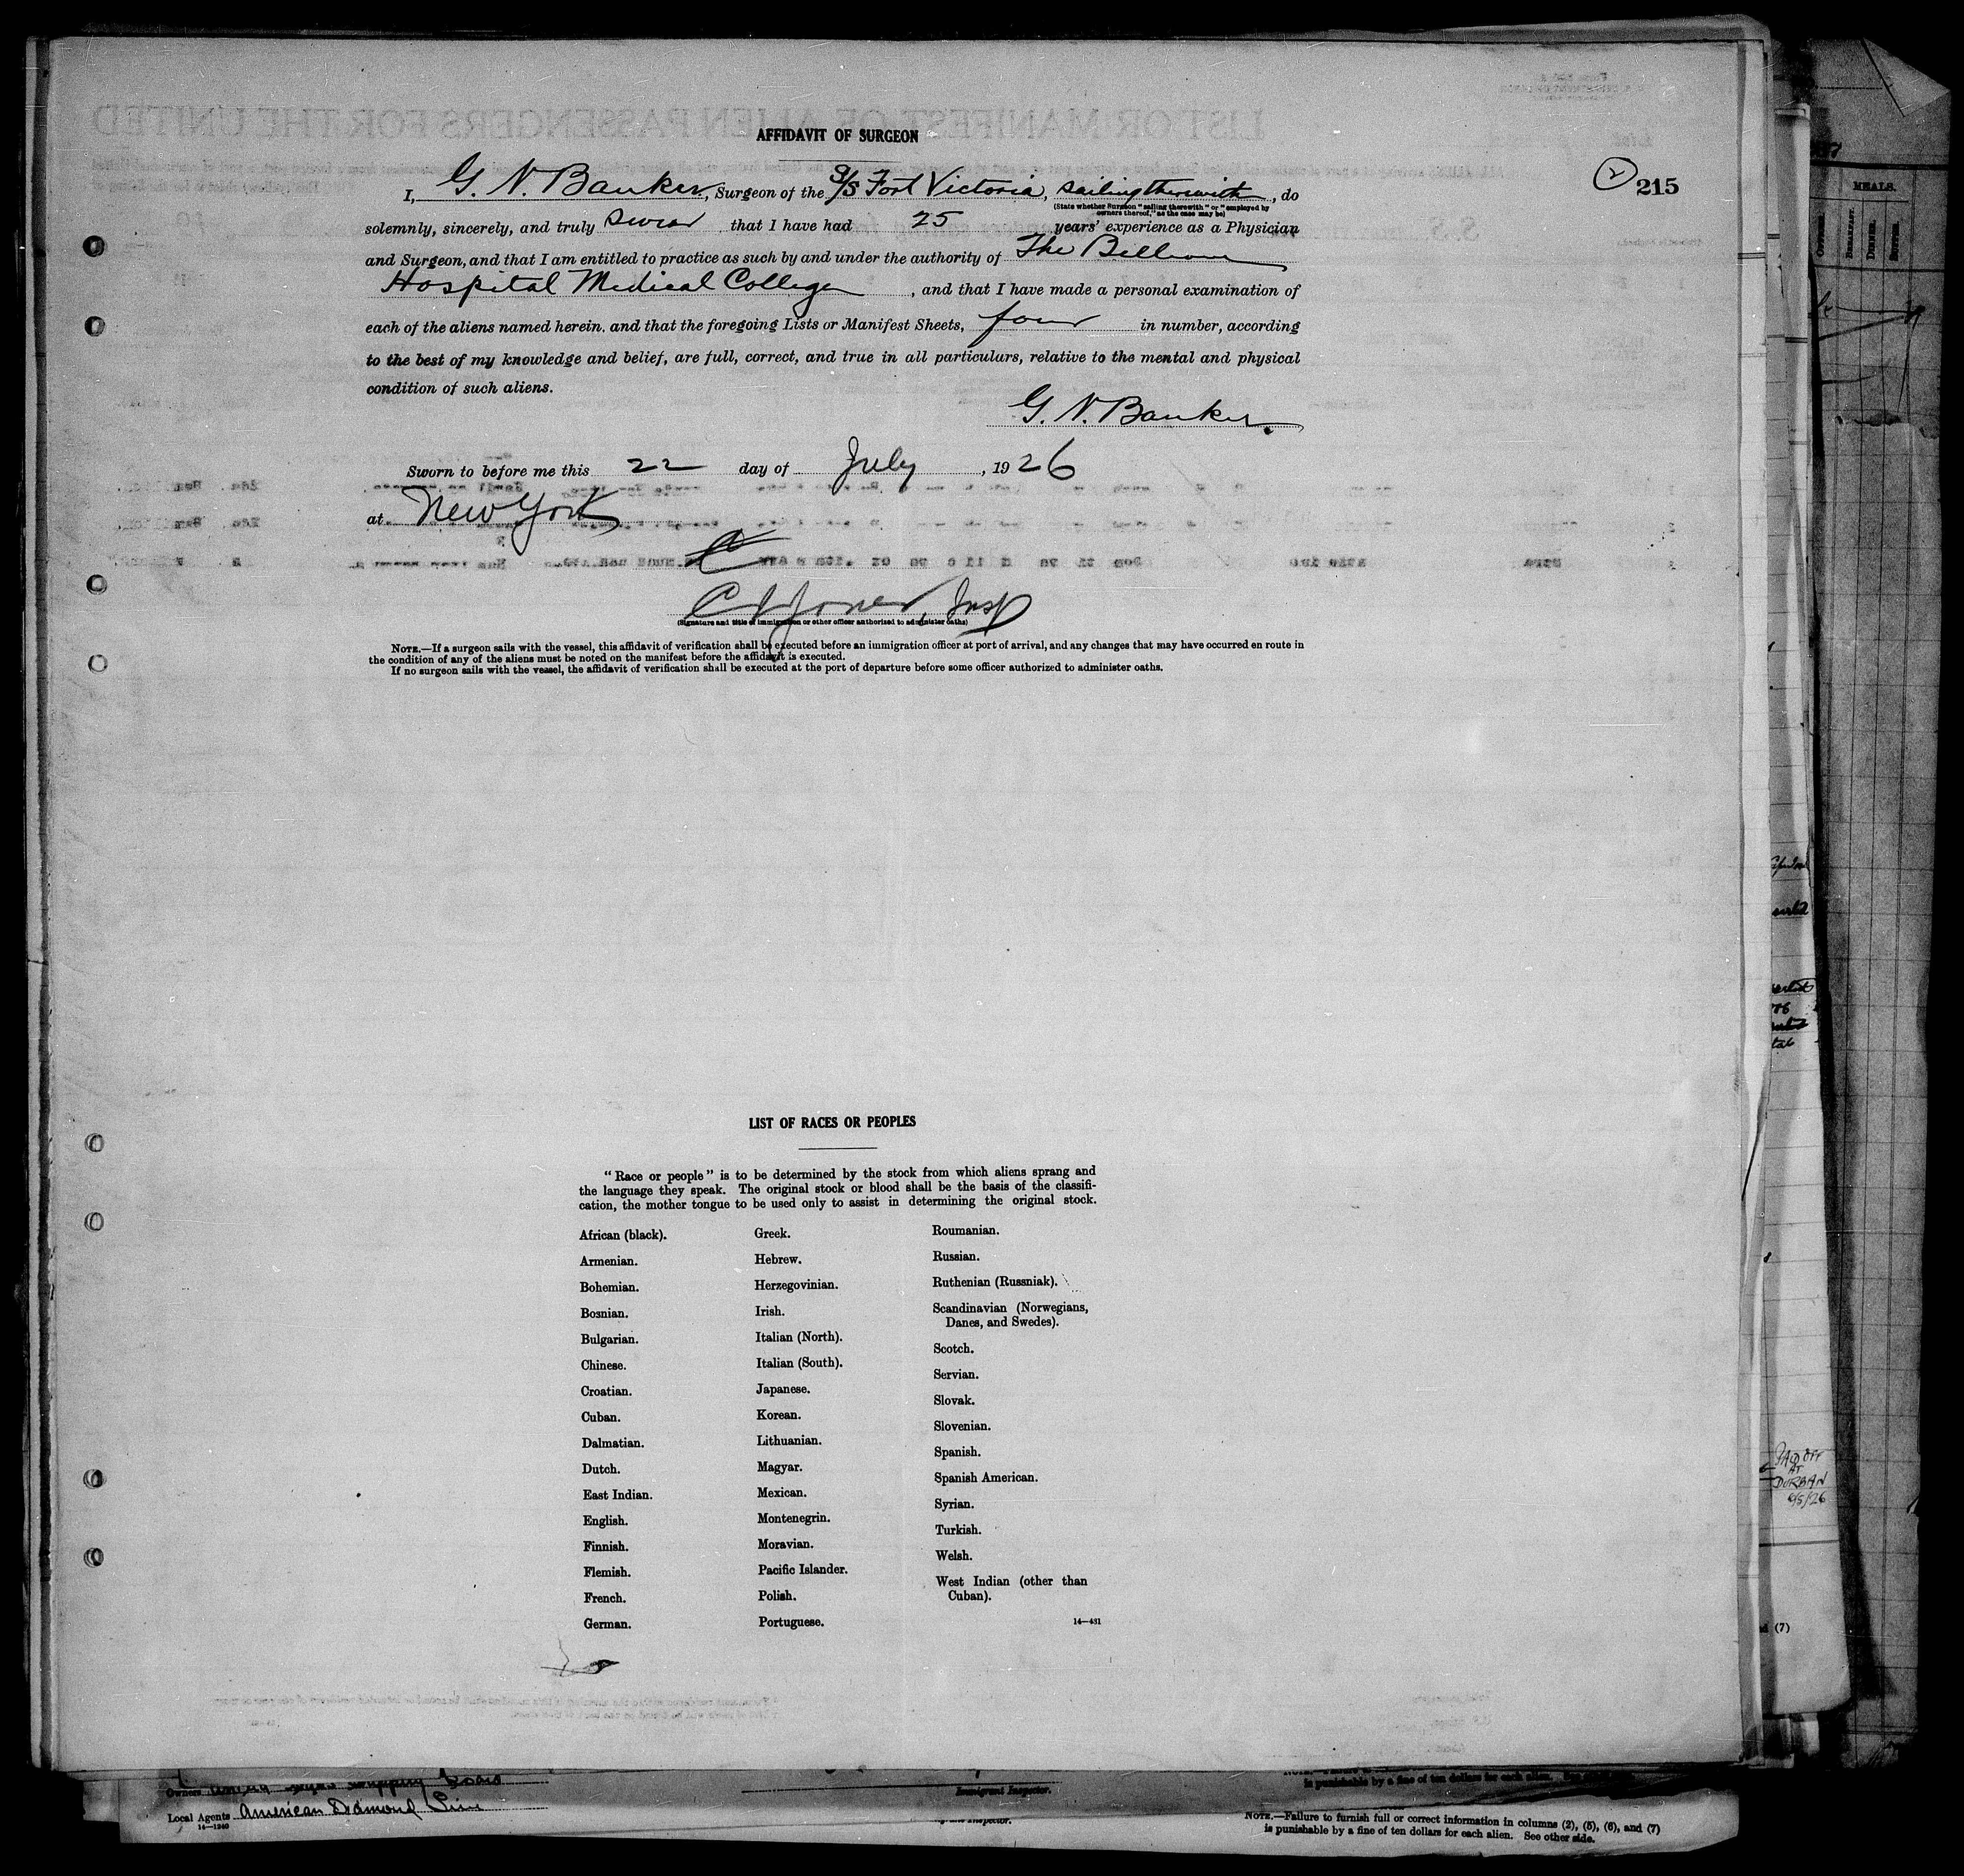 AFFIDAVIT OF SURGEON
2 215
I, G. N. Banker, Surgeon of the S/S Fort Victoria, sailing therewith, do
(State whether Surgeon "sailing therewith" or "employed by
owners thereof," as the case may be)
solemnly, sincerely, and truly swear that I have had 25 years' experience as a Physician
and Surgeon, and that I am entitled to practice as such by and under the authority of The
Hospital Medical College, and that I have made a personal examination of
each of the aliens named herein. and that the foregoing Lists or Manifest Sheets, four in number, according
to the best of my knowledge and belief, are full, correct, and true in all particulars, relative to the mental and physical
condition of such aliens.
G. N. Banker.
Sworn to before me this 22 day of July, 1926
at New York
Jones, Insp
(Signature and title of immigration or other officer authorized to administer oaths)
NOTE.—If a surgeon sails with the vessel, this affidavit of verification shall be executed before an immigration officer at port of arrival, and any changes that may have occurred en route in
the condition of any of the aliens must be noted on the manifest before the affidavit is executed.
If no surgeon sails with the vessel, the affidavit of verification shall be executed at the port of departure before some officer authorized to administer oaths.
LIST OF RACES OR PEOPLES
"Race or people" is to be determined by the stock from which aliens sprang and
the language they speak. The original stock or blood shall be the basis of the classifi-
cation, the mother tongue to be used only to assist in determining the original stock.
African (black).
Armenian.
Bohemian.
Bosnian.
Bulgarian.
Chinese.
Croatian.
Cuban.
Dalmatian.
Dutch.
East Indian.
English.
Finnish.
Flemish.
French.
German.
Greek.
Hebrew.
Herzegovinian.
Irish.
Italian (North).
Italian (South).
Japanese.
Korean.
Lithuanian.
Magyar.
Mexican.
Montenegrin.
Moravian.
Pacific Islander.
Polish.
Portuguese.
Roumanian.
Russian.
Ruthenian (Russniak).
Scandinavian (Norwegians,
Danes, and Swedes).
Scotch.
Servian.
Slovak.
Slovenian.
Spanish.
Spanish American.
Syrian.
Turkish.
Welsh.
West Indian (other than
Cuban).
14—431
MEALS.
BREAKFAST.
DINNER.
SUPPER.
PAID OFF
AT
DURBAN
(7)
Owners
Local Agents American Diamond Line
14—1240
Immigrant Inspector.
is punishable by a fine of ten dollars for each alien.
NOTE.—Failure to furnish full or correct information in columns (2), (5), (6), and (7)
is punishable by a fine of ten dollars for each alien. See other side.